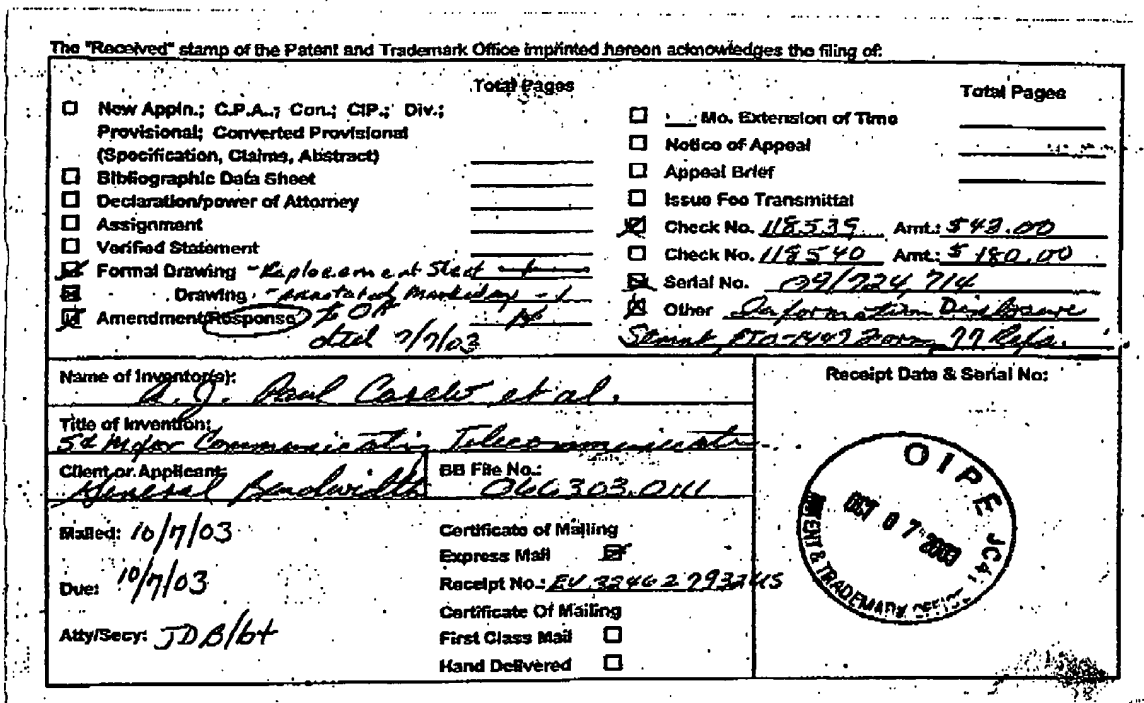 The "Received" stamp of the Patent and Trademark Office imprinted hereon acknowledges the filing of:
Total Pages
New Appln.; C.P.A.; Con.; CIP.; Div.;
Provisional; Converted Provisional
(Specification, Claims, Abstract)
Bibliographic Data Sheet
Declaration/power of Attorney
Assignment
Verified Statement
Formal Drawing - Replacement Sheet - 1
Drawing - annotated Marked up - 1
Amendment/Response to OA
dtd 7/7/03
Total Pages
Mo. Extension of Time
Notice of Appeal
Appeal Brief
Issue Fee Transmittal
Check No. 118539 Amt.: $ 43.00
Check No. 118540 Amt.: $ 180.00
Serial No. 09/724,714
Other Information Disclosure
Stmnt, PTO-1449 Form, 77 Refs.
Name of Inventor(s):
A. J. Paul Carew et al.
Title of Invention:
Communicating Telecommunication
Client or Applicant:
General Bandwidth
BB File No.:
066303.0111
Mailed: 10/7/03
Due: 10/7/03
Atty/Secy: JDB/bt
Certificate of Mailing
Express Mail
Receipt No.: EV 334627933US
Certificate Of Mailing
First Class Mail
Hand Delivered
Receipt Date & Serial No:
OIPE JC41
OCT 07 2003
PATENT & TRADEMARK OFFICE